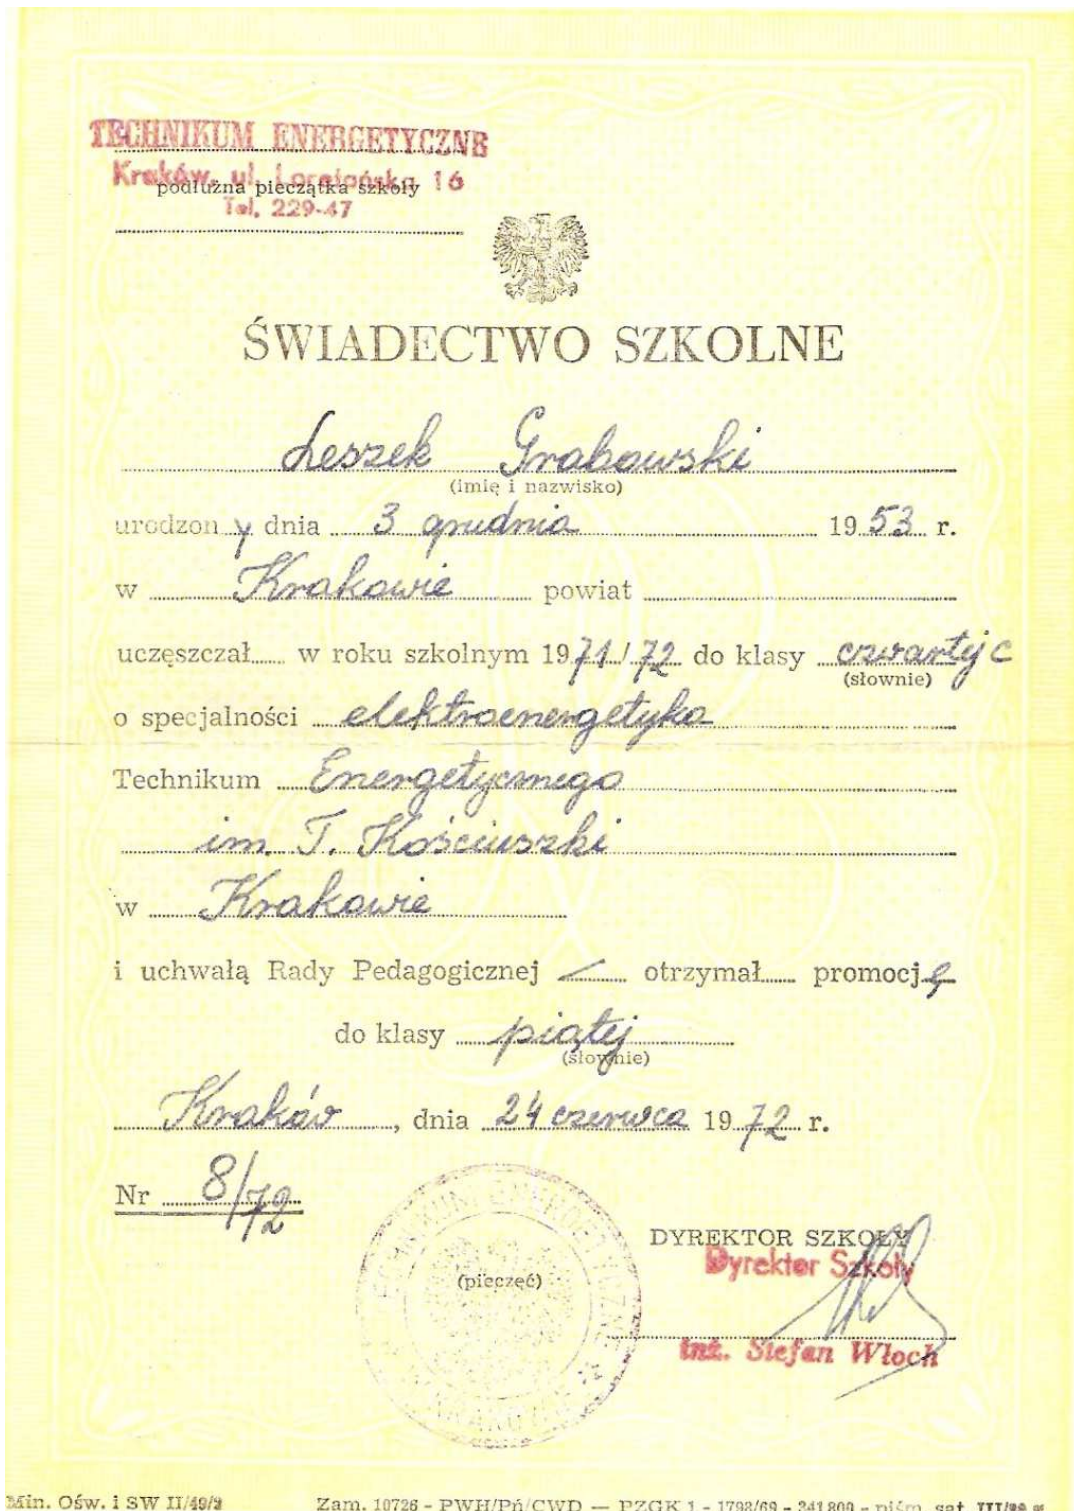 TECHNIKUM ENERGETYCZNE
Kraków, ul. Loretańska 16
podłużna pieczątka szkoły
Tel. 229-47
ŚWIADECTWO SZKOLNE
Leszek Grabowski
(imię i nazwisko)
urodzony dnia 3 grudnia 1953 r.
w Krakowie powiat
uczęszczał w roku szkolnym 1971/72 do klasy czwartej c
(słownie)
o specjalności elektroenergetyka
Technikum Energetycznego
im. T. Kościuszki
w Krakowie
i uchwałą Rady Pedagogicznej otrzymał promocję
do klasy piątej
(słownie)
Kraków, dnia 24 czerwca 1972 r.
Nr 8/72
DYREKTOR SZKOŁY
Dyrektor Szkoły
(pieczęć)
inż. Stefan Włoch
TECHNIKUM ENERGETYCZNE * KRAKÓW *
Min. Ośw. i SW II/49/2 Zam. 10726 - PWH/Pń/CWD — PZGK 1 - 1798/69 - 341 800 - piśm. sat.